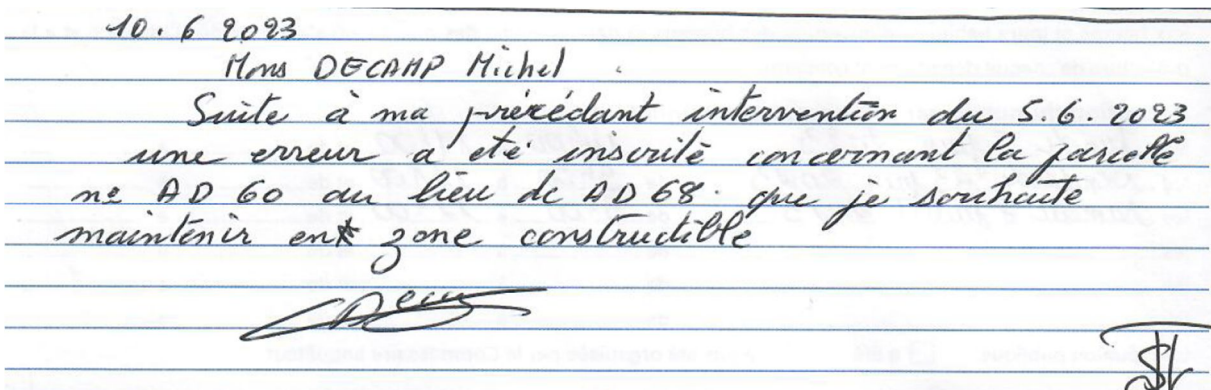 10. 6 2023
Mons DECAMP Michel.
Suite à ma précédant intervention du 5.6.2023
une erreur a été inscrite concernant la parcelle
ne AD 60 au lieu de AD 68. que je souhaite
maintenir en zone constructible